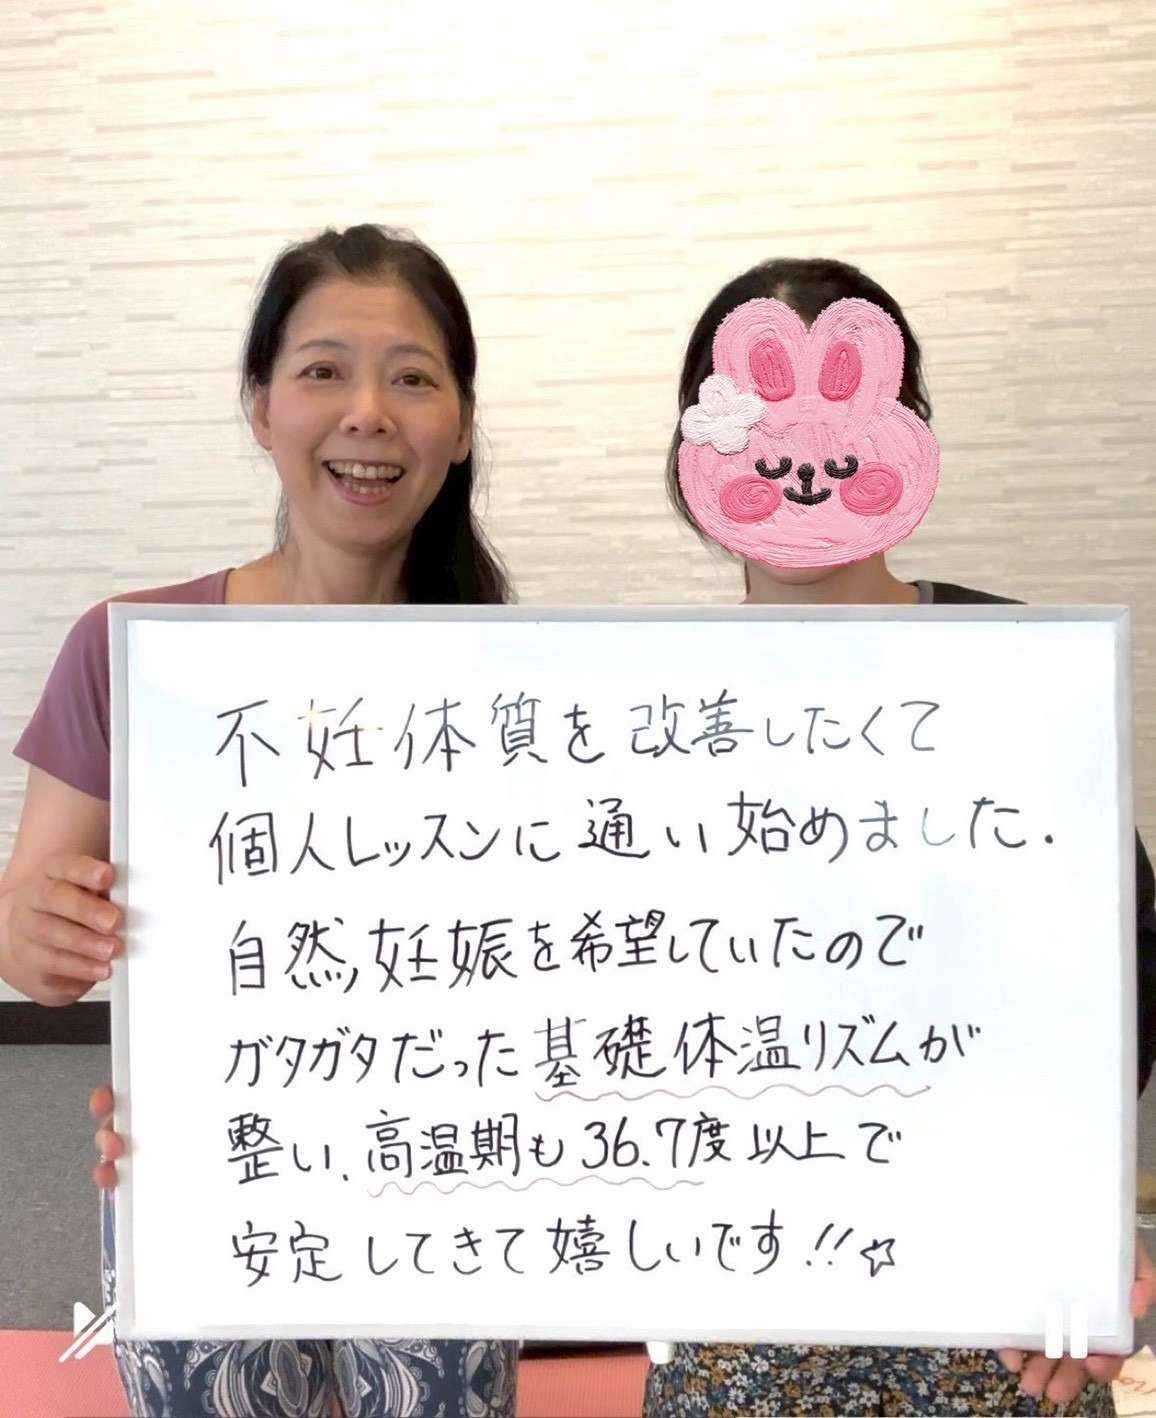 不妊体質を改善したくて
個人レッスンに通い始めました.
自然妊娠を希望していたので
ガタガタだった基礎体温リズムが
整い、高温期も36.7度以上で
安定してきて嬉しいです!!☆